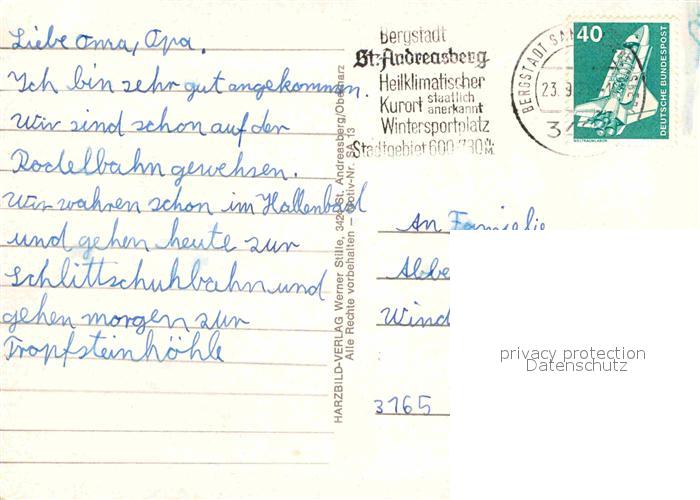 Liebe Oma, Opa.
Ich bin sehr gut angekommen.
Wir sind schon auf der
Rodelbahn gewehsen.
Wir wahren schon im Hallenbad
und gehen heute zur
Schlittschuhbahn und
gehen morgen zur
Tropfsteinhöhle
HARZBILD-VERLAG Werner Stille, 3424 St. Andreasberg/Oberharz
Alle Rechte vorbehalten – Motiv-Nr. SA 13
Bergstadt
St. Andreasberg
Heilklimatischer
Kurort staatlich anerkannt
Wintersportplatz
Stadtgebiet 600/730
BERGSTADT SAN
23.9
34
40
DEUTSCHE BUNDESPOST
WELTRAUMLABOR
An Familie
Abbe
Wind
3165
privacy protection
Datenschutz